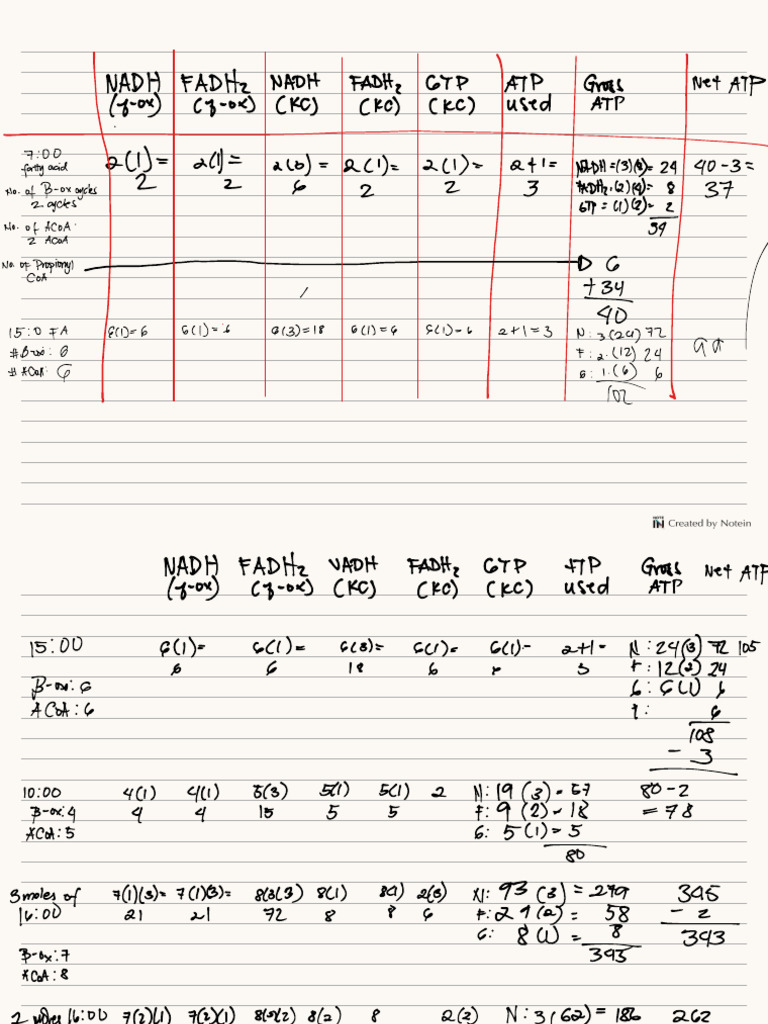 NADH FADH2 NADH FADH2 GTP ATP Gross Net ATP
(β-ox) (β-ox) (KC) (KC) (KC) used ATP
7:00 2(1)= 2(1)= 2(3)= 2(1)= 2(1)= 2+1= NADH=(3)(8)= 24 40-3=
fatty acid 2 2 6 2 2 3 FADH2=(2)(4)= 8 37
No. of B-ox cycles GTP=(1)(2)= 2
2 cycles 34
No. of ACoA:
2 ACoA
No. of Propionyl 6
CoA +34
40
15:0 FA 6(1)=6 6(1)=6 6(3)=18 6(1)=6 6(1)=6 2+1=3 N: 3(24) 72 99
#B-ox: 6 F: 2(12) 24
#ACoA: 6 G: 1(6) 6
102
IN Created by Notein
NADH FADH2 NADH FADH2 GTP ATP Gross Net ATP
(β-ox) (β-ox) (KC) (KC) (KC) used ATP
15:00 6(1)= 6(1)= 6(3)= 6(1)= 6(1)= 2+1= N: 24(3) 72 105
6 6 18 6 6 3 F: 12(2) 24
B-ox: 6 G: 6(1) 6
ACoA: 6 P: 6
108
- 3
10:00 4(1) 4(1) 5(3) 5(1) 5(1) 2 N: 19(3)=57 80-2
B-ox: 4 4 4 15 5 5 F: 9(2)=18 =78
ACoA: 5 G: 5(1)=5
80
3 moles of 7(1)(3)= 7(1)(3)= 8(3)(3) 8(1) 8(1) 2(3) N: 93(3)=279 345
16:00 21 21 72 8 8 6 F: 29(2)= 58 - 2
G: 8(1)= 8 343
B-ox: 7 345
ACoA: 8
2 moles 16:00 7(2)(1) 7(2)(1) 8(3)(2) 8(2) 8 2(2) N: 3(62)= 186 262